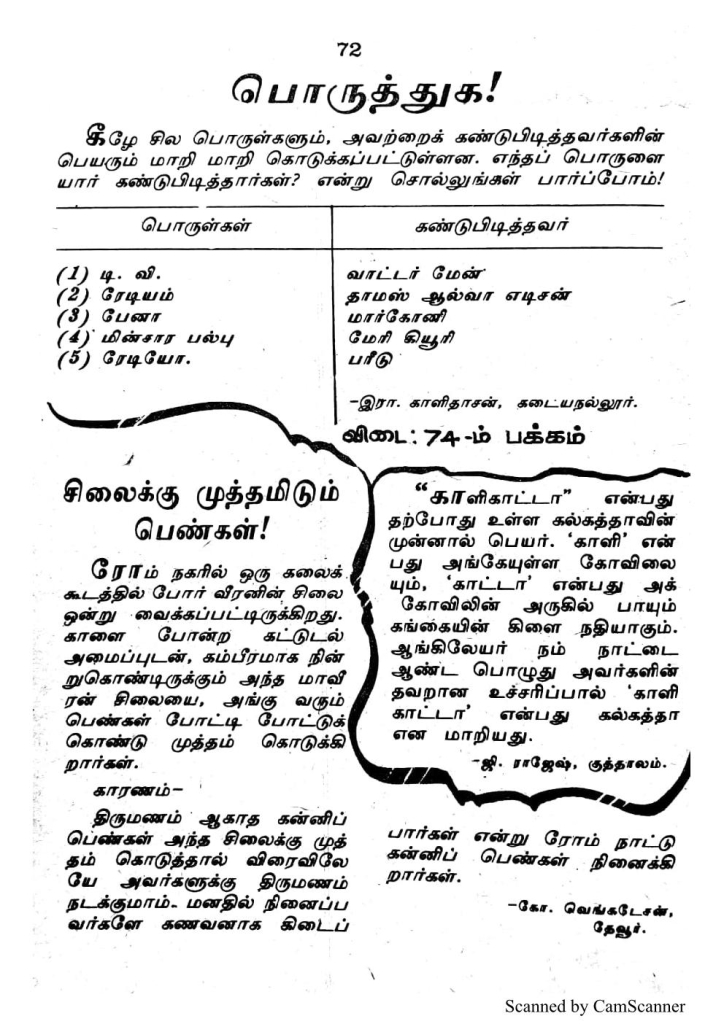 72
பொருத்துக!
கீழே சில பொருள்களும், அவற்றைக் கண்டுபிடித்தவர்களின்
பெயரும் மாறி மாறி கொடுக்கப்பட்டுள்ளன. எந்தப் பொருளை
யார் கண்டுபிடித்தார்கள்? என்று சொல்லுங்கள் பார்ப்போம்!
பொருள்கள் கண்டுபிடித்தவர்
(1) டி. வி. வாட்டர் மேன்
(2) ரேடியம் தாமஸ் ஆல்வா எடிசன்
(3) பேனா மார்கோனி
(4) மின்சார பல்பு மேரி கியூரி
(5) ரேடியோ. பரீடு
-இரா. காளிதாசன், கடையநல்லூர்.
விடை: 74-ம் பக்கம்
சிலைக்கு முத்தமிடும்
பெண்கள்!
ரோம் நகரில் ஒரு கலைக்
கூடத்தில் போர் வீரனின் சிலை
ஒன்று வைக்கப்பட்டிருக்கிறது.
காளை போன்ற கட்டுடல்
அமைப்புடன், கம்பீரமாக நின்
றுகொண்டிருக்கும் அந்த மாவீ
ரன் சிலையை, அங்கு வரும்
பெண்கள் போட்டி போட்டுக்
கொண்டு முத்தம் கொடுக்கி
றார்கள்.
காரணம்-
திருமணம் ஆகாத கன்னிப்
பெண்கள் அந்த சிலைக்கு முத்
தம் கொடுத்தால் விரைவிலே
யே அவர்களுக்கு திருமணம்
நடக்குமாம். மனதில் நினைப்ப
வர்களே கணவனாக கிடைப்
பார்கள் என்று ரோம் நாட்டு
கன்னிப் பெண்கள் நினைக்கி
றார்கள்.
-கோ. வெங்கடேசன்,
தேவூர்.
"காளிகாட்டா" என்பது
தற்போது உள்ள கல்கத்தாவின்
முன்னால் பெயர். 'காளி' என்
பது அங்கேயுள்ள கோவிலை
யும், 'காட்டா' என்பது அக்
கோவிலின் அருகில் பாயும்
கங்கையின் கிளை நதியாகும்.
ஆங்கிலேயர் நம் நாட்டை
ஆண்ட பொழுது அவர்களின்
தவறான உச்சரிப்பால் 'காளி
காட்டா' என்பது கல்கத்தா
என மாறியது.
-ஜி. ராஜேஷ், குத்தாலம்.
Scanned by CamScanner